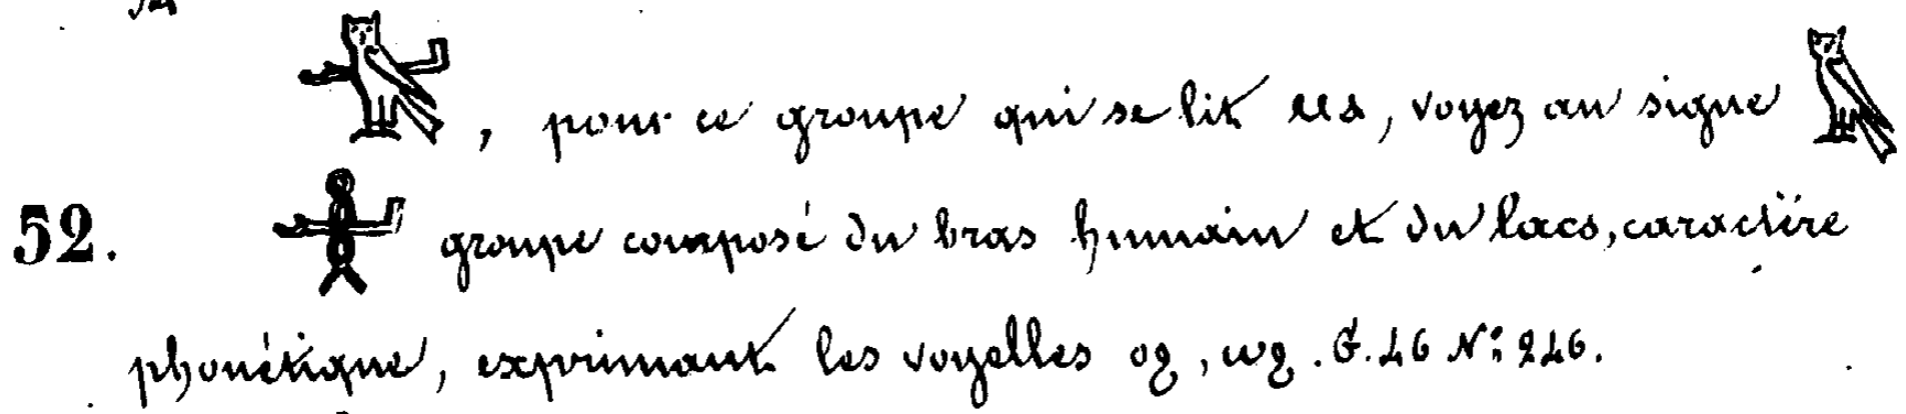 𓅓𓂝, pour ce groupe qui se lit ⲙⲁ, voyez au signe 𓅓
52. groupe composé du bras humain et du lacs, caractère
phonétique, exprimant les voyelles ⲟϩ, ⲱϩ. G. 46 N.º 246.